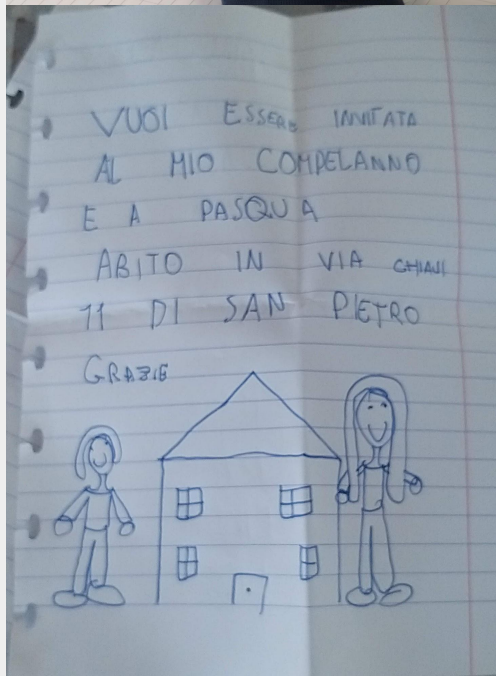 VUOI ESSERE INVITATA
AL MIO COMPELANNO
E A PASQUA
ABITO IN VIA CHIAVI
11 DI SAN PIETRO
GRAZIE